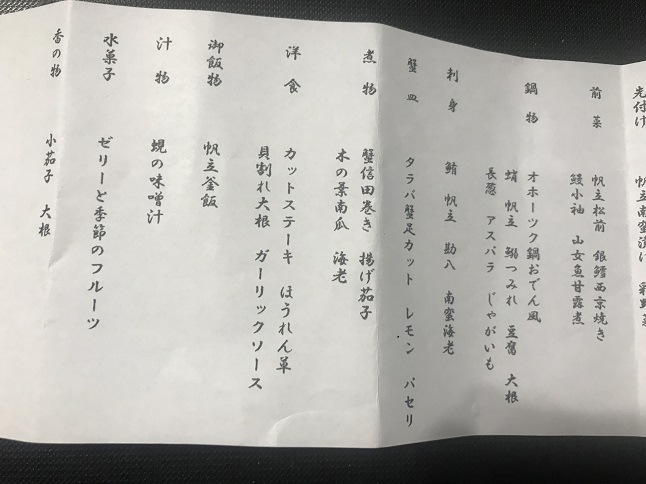 先付け 帆立南蛮漬け 彩野菜
前菜 帆立松前 銀鱈西京焼き
鰻小袖 山女魚甘露煮
鍋物 オホーツク鍋おでん風
蛸 帆立 鰯つみれ 豆腐 大根
長葱 アスパラ じゃがいも
刺身 鮪 帆立 勘八 南蛮海老
蟹皿 タラバ蟹足カット レモン パセリ
煮物 蟹信田巻き 揚げ茄子
木の葉南瓜 海老
洋食 カットステーキ ほうれん草
貝割れ大根 ガーリックソース
御飯物 帆立釜飯
汁物 蜆の味噌汁
水菓子 ゼリーと季節のフルーツ
香の物 小茄子 大根